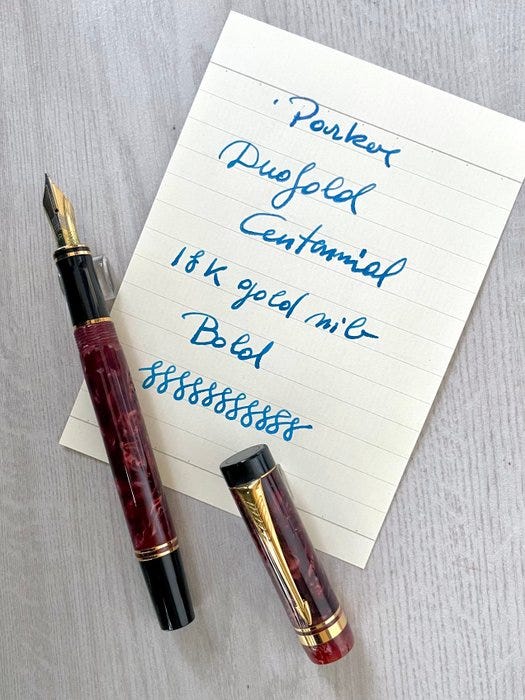 Parker
Duofold
Centennial
18K gold nib
Bold